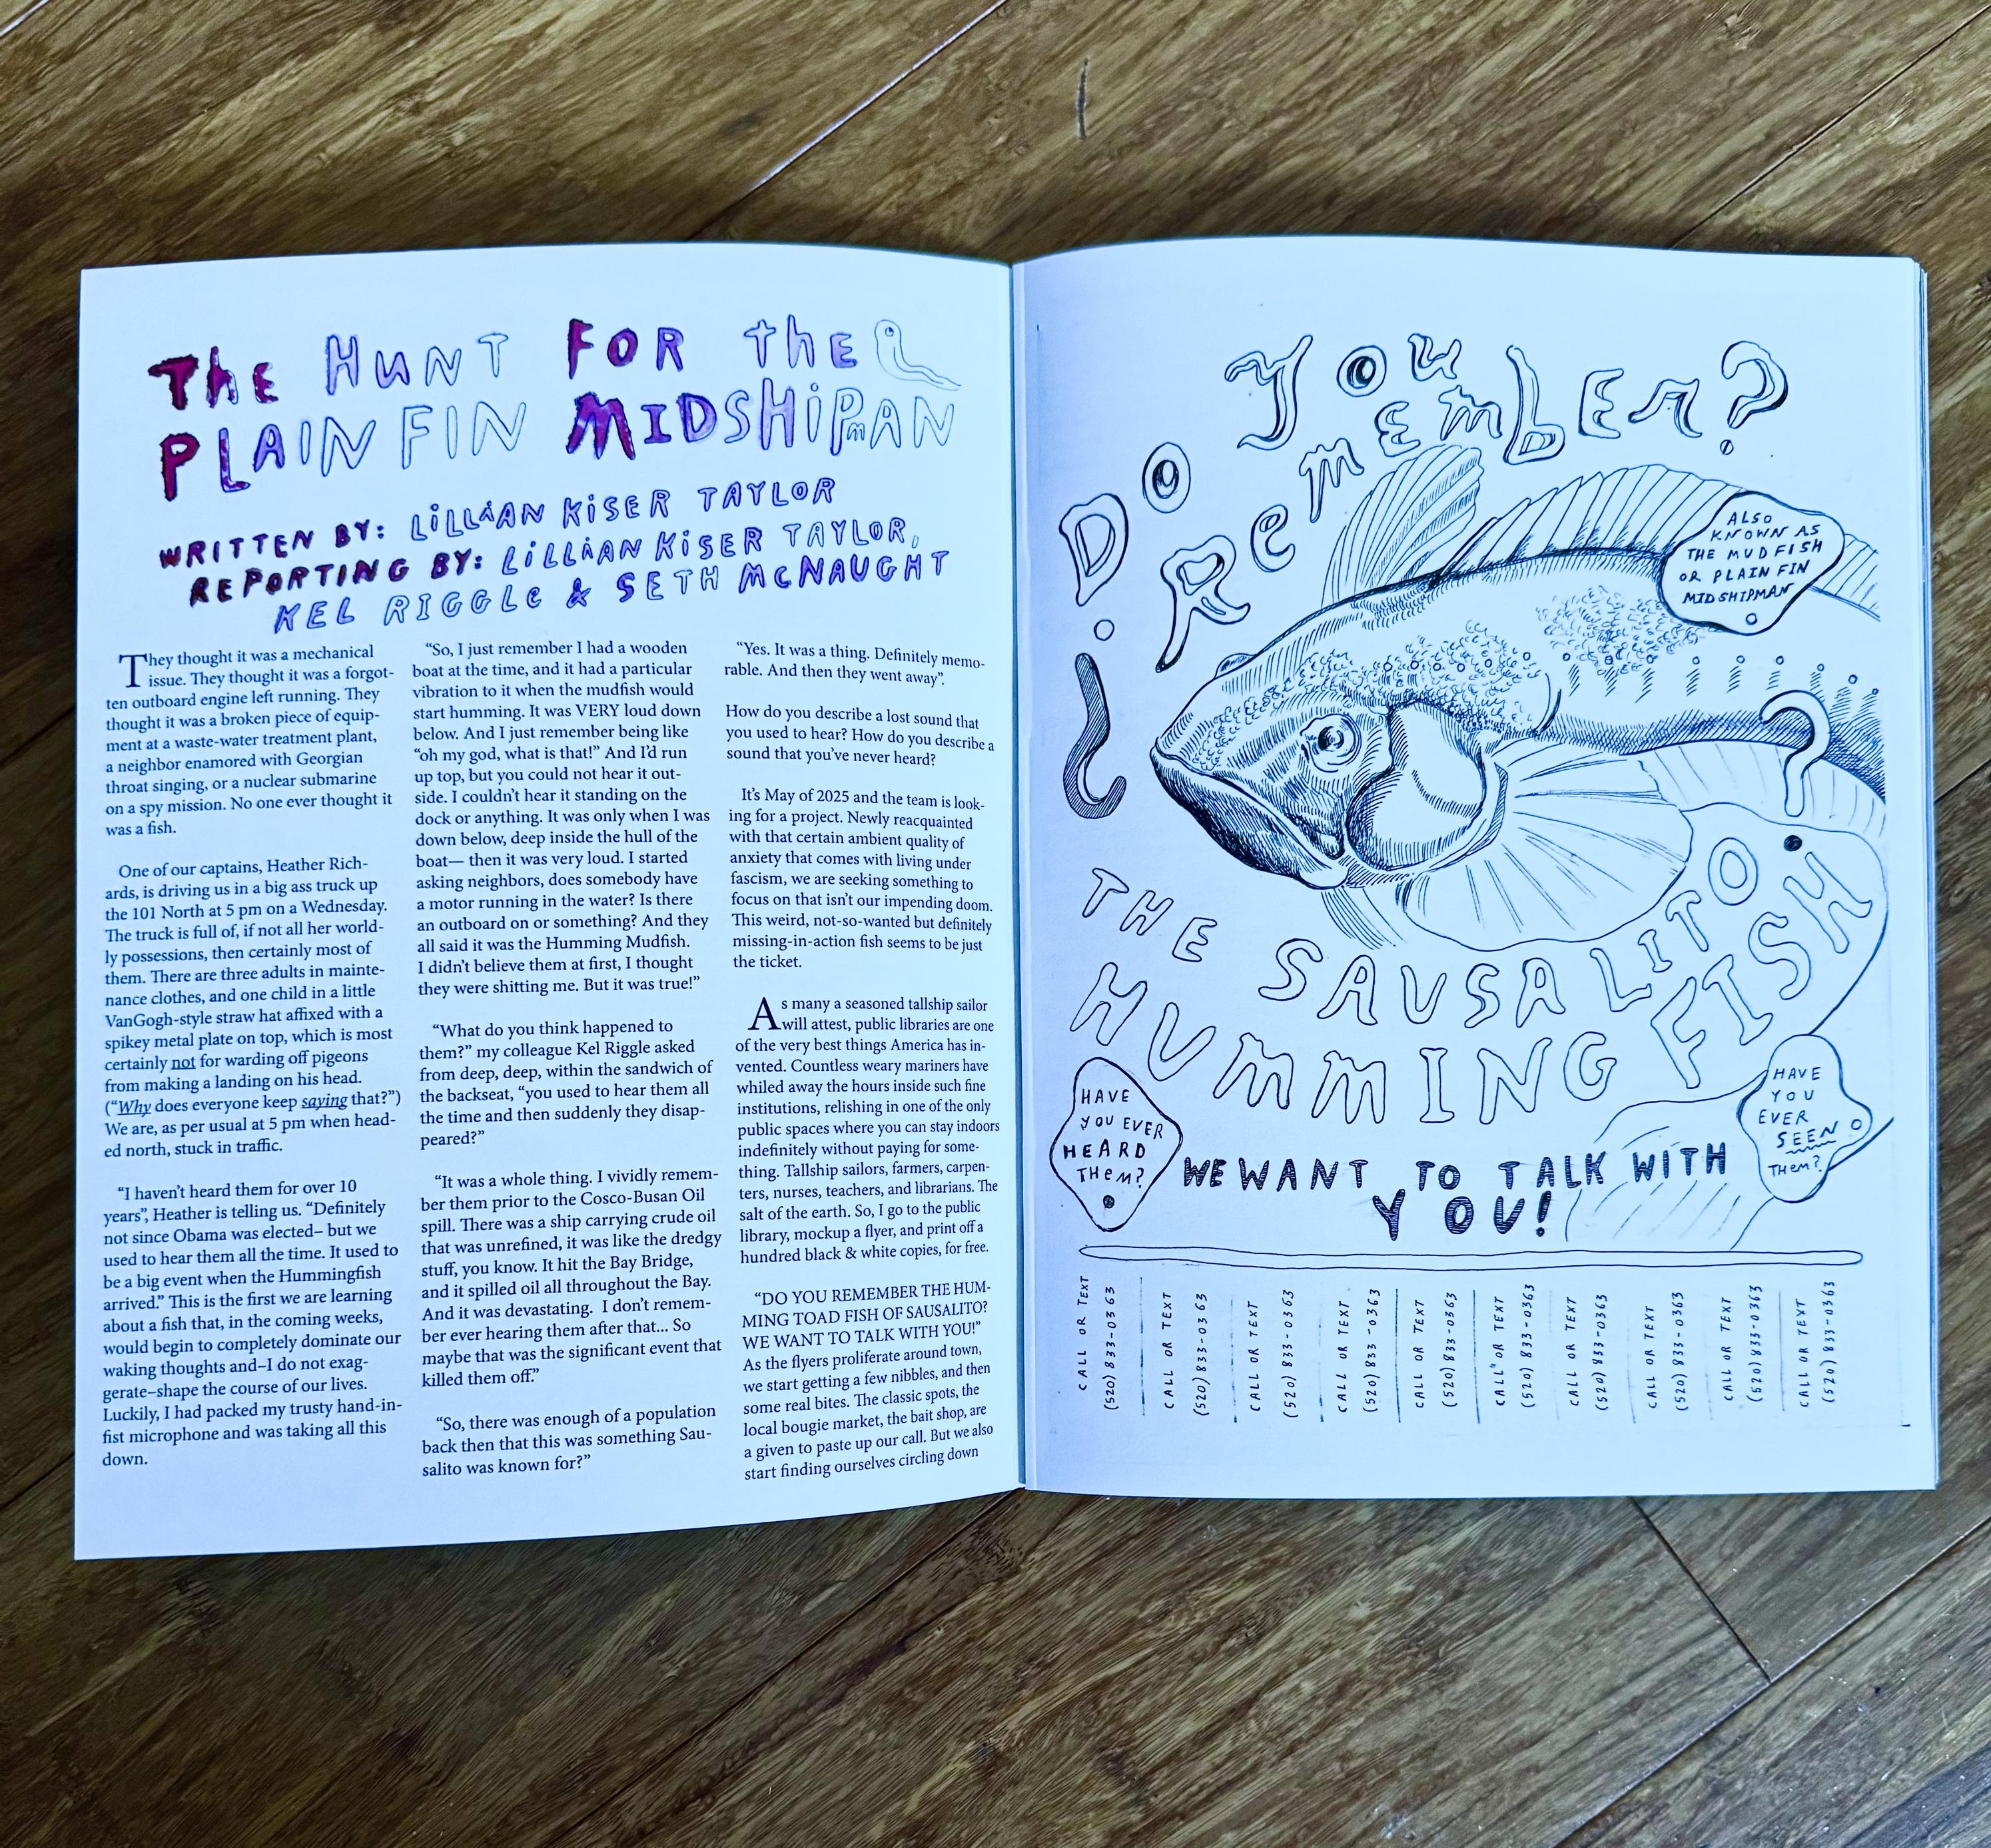 The Hunt for the
Plain Fin Midshipman
Written by: Lillian Kiser Taylor
Reporting by: Lillian Kiser Taylor,
Kel Riggle & Seth McNaught
They thought it was a mechanical
issue. They thought it was a forgot-
ten outboard engine left running. They
thought it was a broken piece of equip-
ment at a waste-water treatment plant,
a neighbor enamored with Georgian
throat singing, or a nuclear submarine
on a spy mission. No one ever thought it
was a fish.
One of our captains, Heather Rich-
ards, is driving us in a big ass truck up
the 101 North at 5 pm on a Wednesday.
The truck is full of, if not all her world-
ly possessions, then certainly most of
them. There are three adults in mainte-
nance clothes, and one child in a little
VanGogh-style straw hat affixed with a
spikey metal plate on top, which is most
certainly not for warding off pigeons
from making a landing on his head.
(“Why does everyone keep saying that?”)
We are, as per usual at 5 pm when head-
ed north, stuck in traffic.
“I haven’t heard them for over 10
years”, Heather is telling us. “Definitely
not since Obama was elected– but we
used to hear them all the time. It used to
be a big event when the Hummingfish
arrived.” This is the first we are learning
about a fish that, in the coming weeks,
would begin to completely dominate our
waking thoughts and–I do not exag-
gerate–shape the course of our lives.
Luckily, I had packed my trusty hand-in-
fist microphone and was taking all this
down.
“So, I just remember I had a wooden
boat at the time, and it had a particular
vibration to it when the mudfish would
start humming. It was VERY loud down
below. And I just remember being like
“oh my god, what is that!” And I’d run
up top, but you could not hear it out-
side. I couldn’t hear it standing on the
dock or anything. It was only when I was
down below, deep inside the hull of the
boat— then it was very loud. I started
asking neighbors, does somebody have
a motor running in the water? Is there
an outboard on or something? And they
all said it was the Humming Mudfish.
I didn’t believe them at first, I thought
they were shitting me. But it was true!”
“What do you think happened to
them?” my colleague Kel Riggle asked
from deep, deep, within the sandwich of
the backseat, “you used to hear them all
the time and then suddenly they disap-
peared?”
“It was a whole thing. I vividly remem-
ber them prior to the Cosco-Busan Oil
spill. There was a ship carrying crude oil
that was unrefined, it was like the dredgy
stuff, you know. It hit the Bay Bridge,
and it spilled oil all throughout the Bay.
And it was devastating. I don’t remem-
ber ever hearing them after that... So
maybe that was the significant event that
killed them off.”
“So, there was enough of a population
back then that this was something Sau-
salito was known for?”
“Yes. It was a thing. Definitely memo-
rable. And then they went away”.
How do you describe a lost sound that
you used to hear? How do you describe a
sound that you’ve never heard?
It’s May of 2025 and the team is look-
ing for a project. Newly reacquainted
with that certain ambient quality of
anxiety that comes with living under
fascism, we are seeking something to
focus on that isn’t our impending doom.
This weird, not-so-wanted but definitely
missing-in-action fish seems to be just
the ticket.
As many a seasoned tallship sailor
will attest, public libraries are one
of the very best things America has in-
vented. Countless weary mariners have
whiled away the hours inside such fine
institutions, relishing in one of the only
public spaces where you can stay indoors
indefinitely without paying for some-
thing. Tallship sailors, farmers, carpen-
ters, nurses, teachers, and librarians. The
salt of the earth. So, I go to the public
library, mockup a flyer, and print off a
hundred black & white copies, for free.
“DO YOU REMEMBER THE HUM-
MING TOAD FISH OF SAUSALITO?
WE WANT TO TALK WITH YOU!”
As the flyers proliferate around town,
we start getting a few nibbles, and then
some real bites. The classic spots, the
local bougie market, the bait shop, are
a given to paste up our call. But we also
start finding ourselves circling down
¿Do You
Remember?
ALSO
KNOWN AS
THE MUDFISH
OR PLAIN FIN
MIDSHIPMAN
?
THE SAUSALITO
HUMMING FISH
HAVE
YOU EVER
HEARD
THEM?
HAVE
YOU
EVER
SEEN
THEM?
WE WANT TO TALK WITH
YOU!
CALL OR TEXT
(520) 833-0363
CALL OR TEXT
(520) 833-0363
CALL OR TEXT
(520) 833-0363
CALL OR TEXT
(520) 833-0363
CALL OR TEXT
(520) 833-0363
CALL OR TEXT
(520) 833-0363
CALL OR TEXT
(520) 833-0363
CALL OR TEXT
(520) 833-0363
CALL OR TEXT
(520) 833-0363
CALL OR TEXT
(520) 833-0363